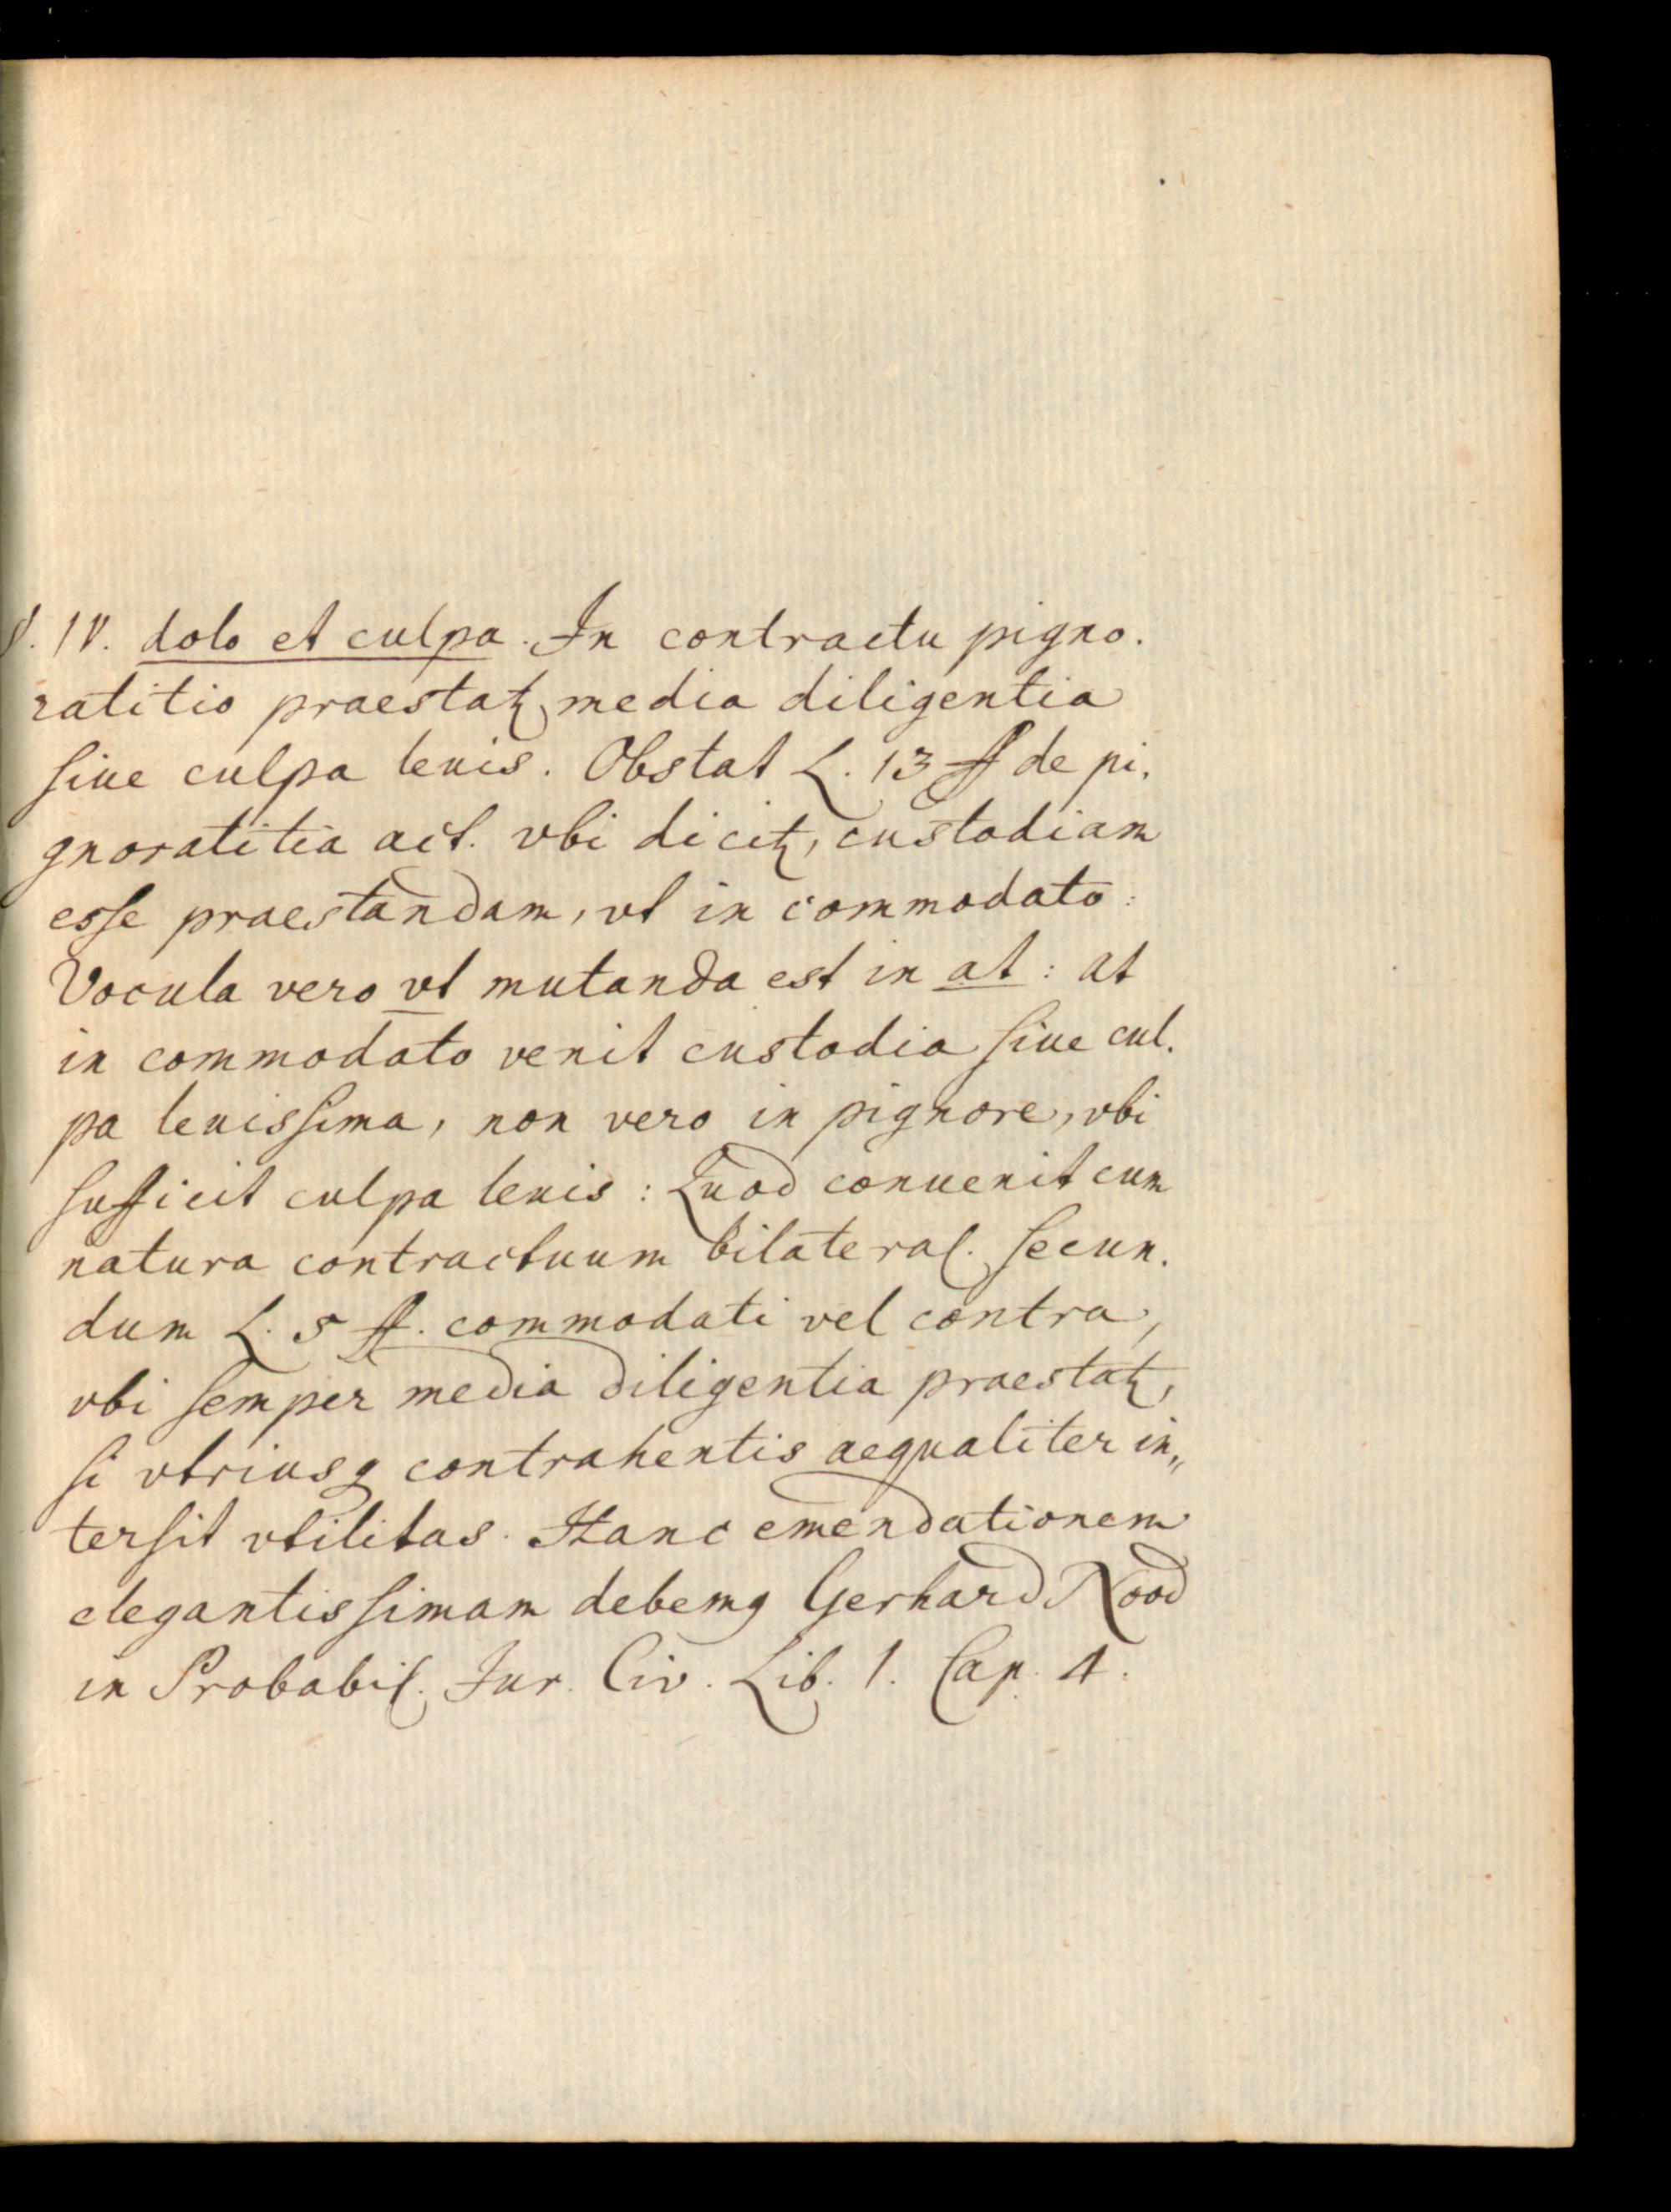 §. IV. dolo et culpa. In contractu pigno.
ratitio praestatꝫ media diligentia
siue culpa leuis. Obstat L. 13 ff de pi,
gnoratitia act. vbi dicitꝫ, custodiam
esse praestandam, vt in commodato:
Vocula vero vt mutanda est in at: at
in commodato venit custodia siue cul.
pa leuissima, non vero in pignore, vbi
sufficit culpa leuis: Quod conuenit cum
natura contractuum bilateral. secun.
dum L. 5 ff. commodati vel contra,
vbi semper media diligentia praestatꝫ,
si vtriusq contrahentis aequaliter in„
tersit vtilitas. Hanc emendationem
elegantissimam debemꝯ Gerhard Nood
in Probabil. Jur. Civ. Lib. 1. Cap. 4.